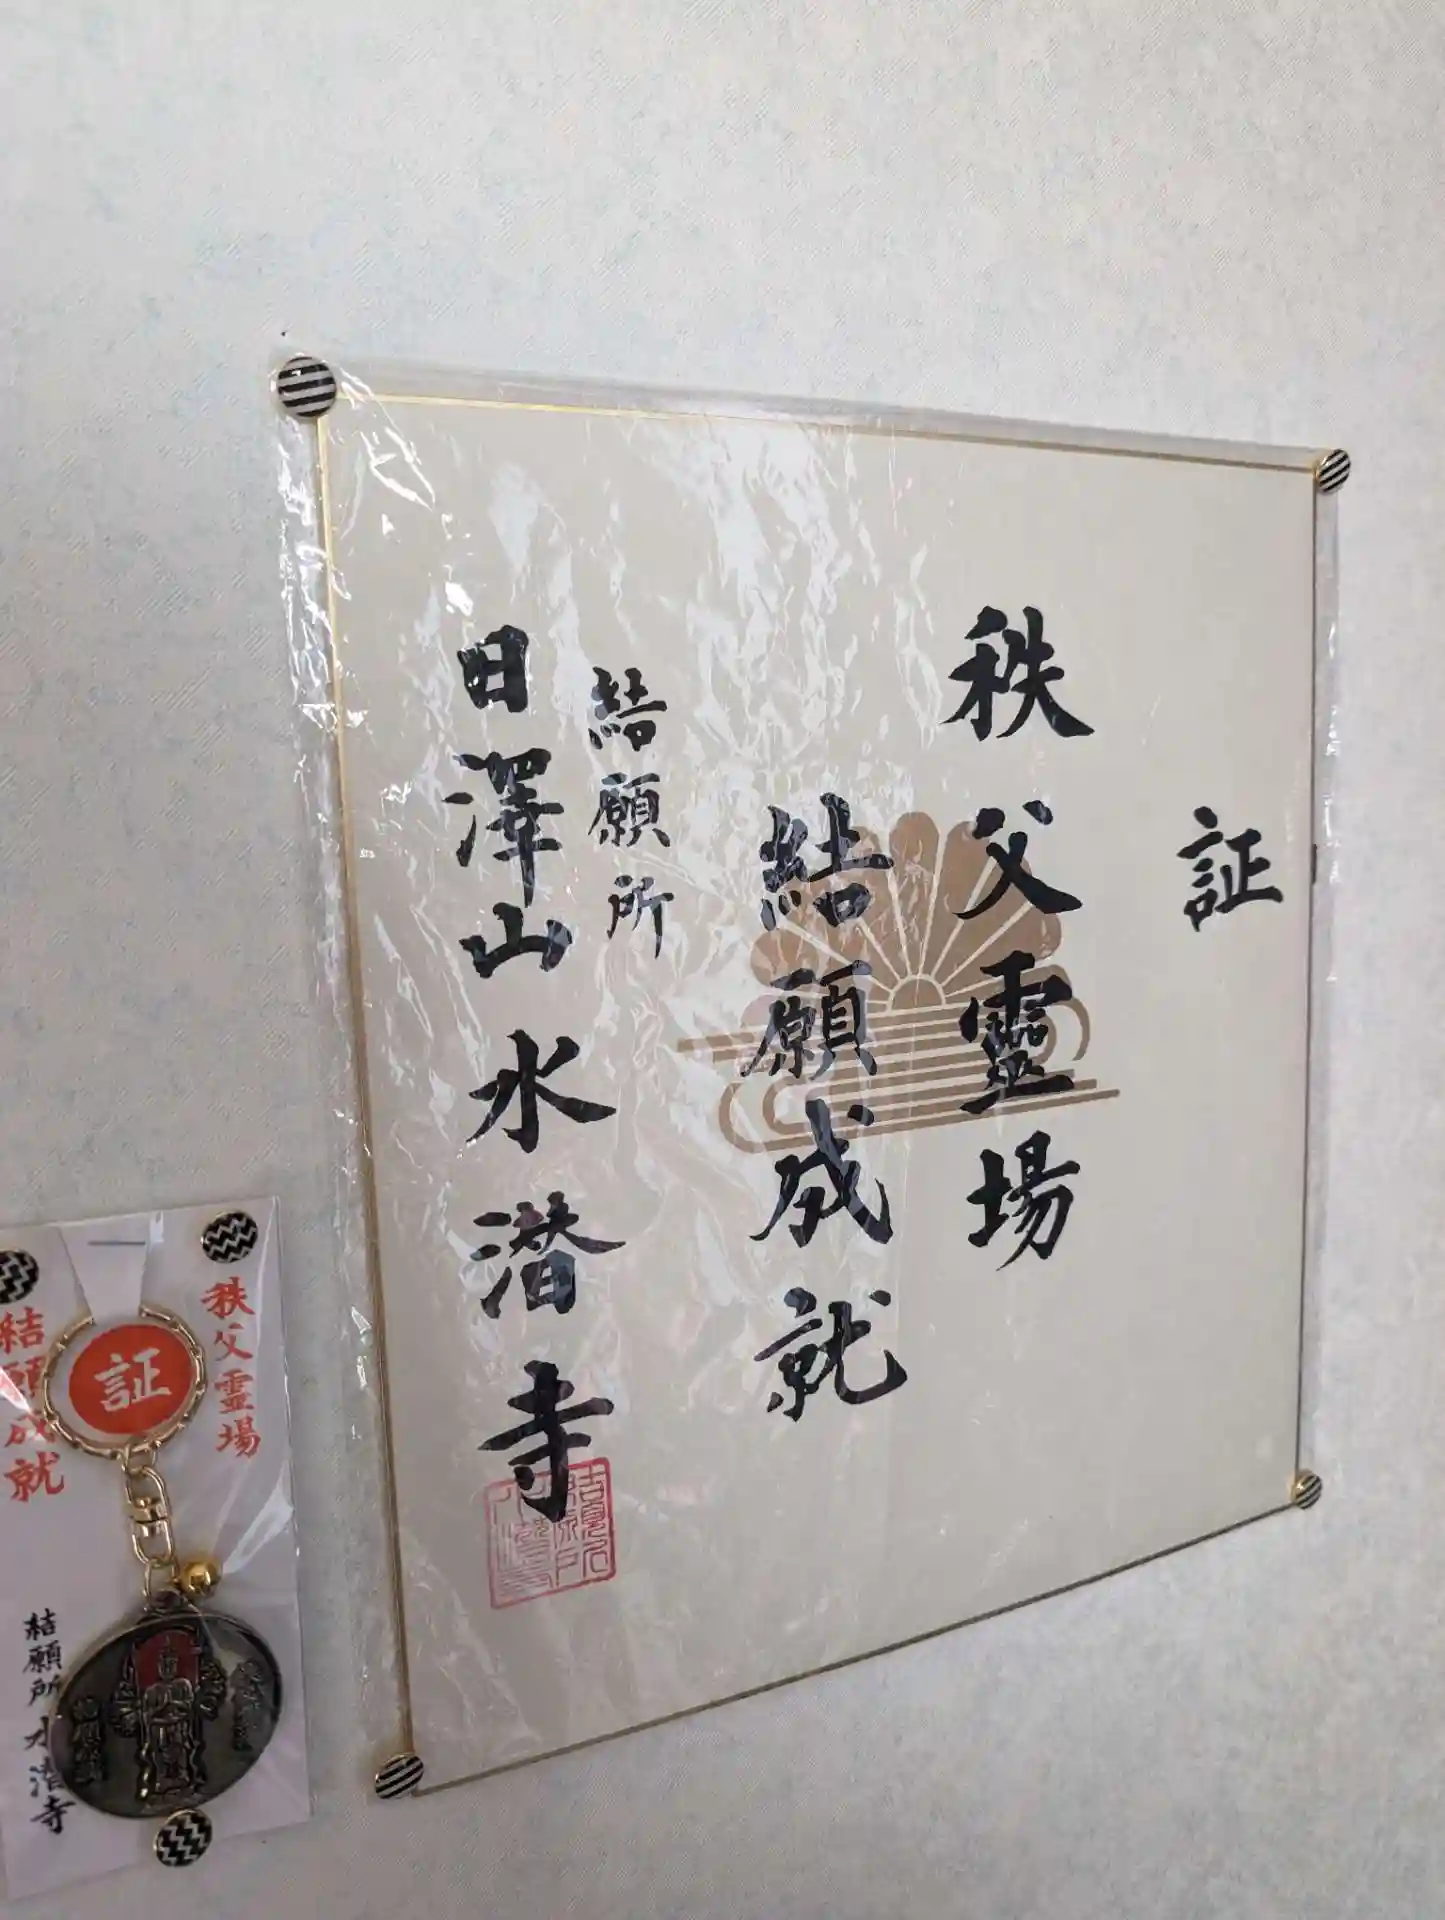 証
秩父靈場
結願成就
結願所
日澤山水潜寺
秩父霊場
証
結願成就
結願所 水潜寺